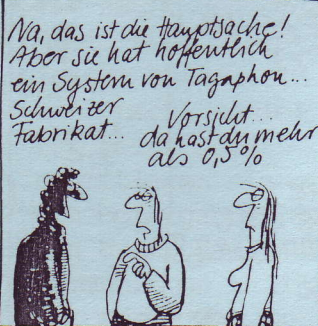 Na, das ist die Hauptsache!
Aber sie hat hoffentlich
ein System von Tagaphon...
Schweizer
Fabrikat...
Vorsicht...
da hast du mehr
als 0,5%